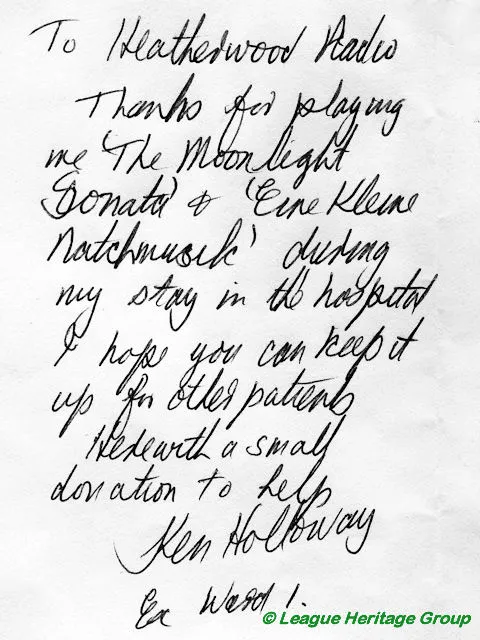 To Heatherwood Radio
Thanks for playing
me 'The Moonlight
Sonata' & 'Eine Kleine
Natchmusik' during
my stay in the hospital
I hope you can keep it
up for other patients
Herewith a small
donation to help
Ken Holloway
Ex Ward 1.
© League Heritage Group